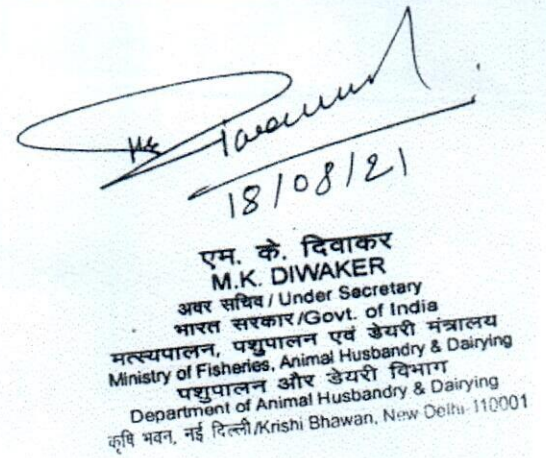 18/08/21
एम. के. दिवाकर
M.K. DIWAKER
अवर सचिव / Under Secretary
भारत सरकार/Govt. of India
मत्स्यपालन, पशुपालन एवं डेयरी मंत्रालय
Ministry of Fisheries, Animal Husbandry & Dairying
पशुपालन और डेयरी विभाग
Department of Animal Husbandry & Dairying
कृषि भवन, नई दिल्ली/Krishi Bhawan, New Delhi-110001